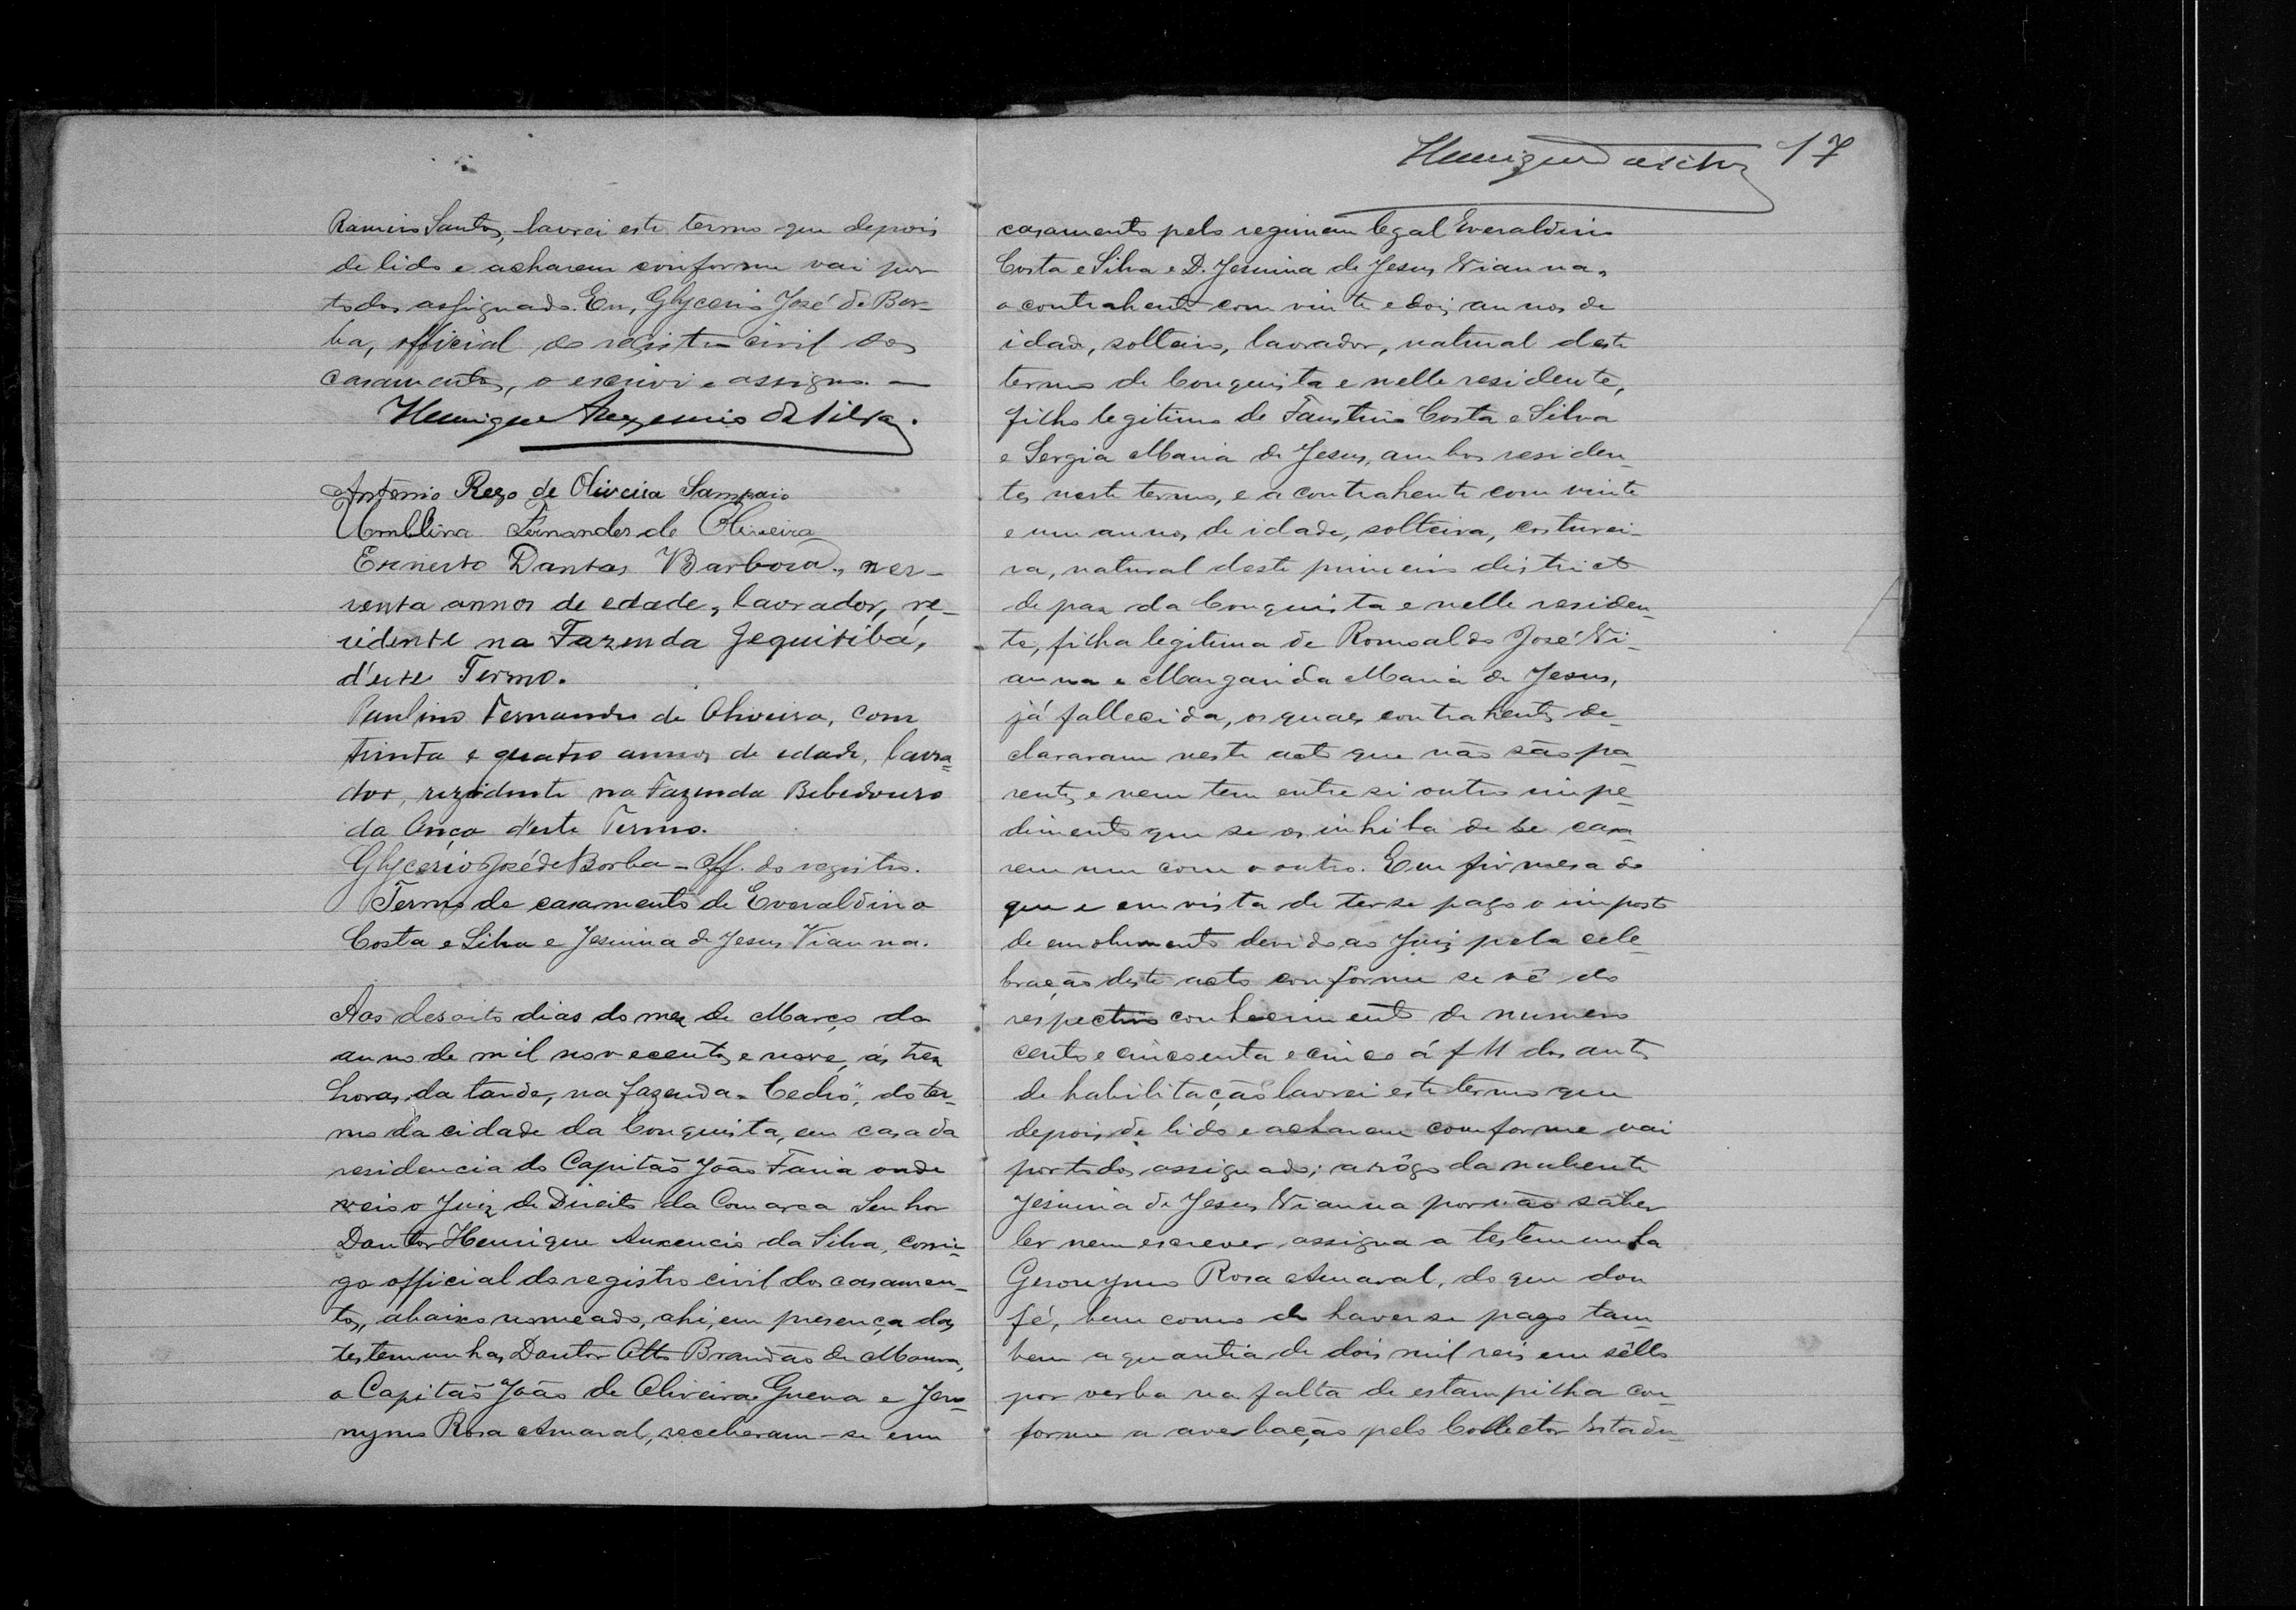 Ramiro Santos, lavrei este termo que depois
de lido e acharem conforme vai por
todos assignado. Eu, Glycerio José de Bor-
ba, official do registro civil dos
casamentos, o escrivi e assigno. —
Henrique Auxencio da Silva.
Antonio Rego de Oliveira Sampaio
Umbilina Fernandes de Oliveira
Ernesto Dantas Barbosa,
renta annos de edade, lavrador, re-
zidente na Fazenda Jequitibá,
d'este Termo.
Paulino Fernandes de Oliveira, com
trinta e quatro annos de edade, lavra-
dor, rezidente na Fazenda Bebedouro
da Onça d'este Termo.
Glycerio José de Borba - Off. do registro.
Termo de casamento de Everaldino
Costa e Silva e Jesuina de Jesus Vianna.
Aos desoito dias do mez de Março do
anno de mil novecentos e nove, ás trez
horas da tarde, na fazenda "Cedro", do ter-
mo da cidade da Conquista, em casa da
residencia do Capitão João Faria onde
veio o Juiz de Direito da Comarca Senhor
Doutor Henrique Auxencio da Silva, comi-
go official do registro civil dos casamen-
tos, abaixo nomeado, ahi, em presença das
testemunhas Doutor Otto Brandão de Moura,
o Capitão João de Oliveira Guerra e Jero-
nymo Rosa Amaral, receberam-se em
17
casamento pelo regimem legal Everaldino
Costa e Silva e D. Jesuina de Jesus Vianna,
o contrahente com vinte e dois annos de
idade, solteiro, lavrador, natural deste
termo de Conquista e nelle residente,
filho legitimo de Faustino Costa e Silva
e Sergia Maria de Jesus, ambos residen-
tes neste termo, e a contrahente com vinte
e um annos de idade, solteira, costurei-
ra, natural deste primeiro districto
de paz da Conquista e nelle residen-
te, filha legitima de Romoaldo José Vi-
anna e Margarida Maria de Jesus,
já fallecida, os quaes contrahentes de-
clararam neste acto que não são pa-
rentes e nem tem entre si outro impe-
dimento que se os inhiba de se casa-
rem um com o outro. Em firmesa do
que e em vista de ter-se pago o imposto
de emolumento devido ao Juiz pela cele-
bração deste acto conforme se vê do
respectivo conhecimento de numero
cento e cincoenta e cinco á f 11 dos autos
de habilitação lavrei este termo que
depois de lido e acharem comforme vai
por todos assignado; a rôgo da nubente
Jesuina de Jesus Vianna por não saber
ler nem escrever assigna a testemunha
Geronymo Rosa Amaral, do que dou
fé, bem como de haver se pago tam-
bem a quantia de dois mil reis em sêllo
por verba na falta de estampilha con-
forme a averbação pelo Collector Estadu-